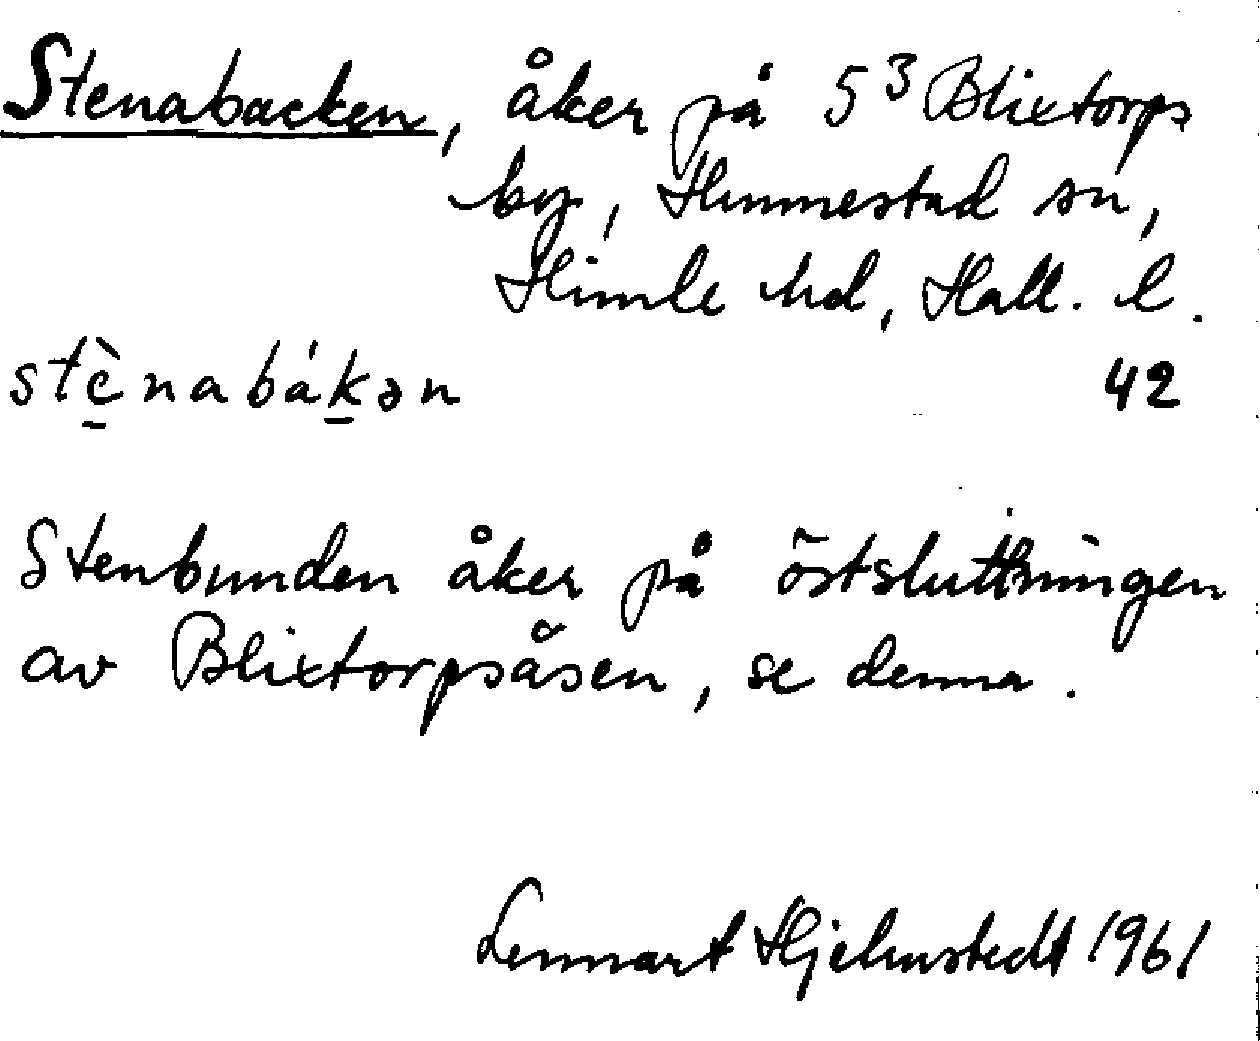 Stenabacken, åker på 5³ Blixtorps
by, Hunnestad sn,
Himle hd, Hall. l.
stè̱nabáḵən 42
Stenbunden åker på östsluttningen
av Blixtorpsåsen, se denna.
Lennart Hjelmstedt 1961